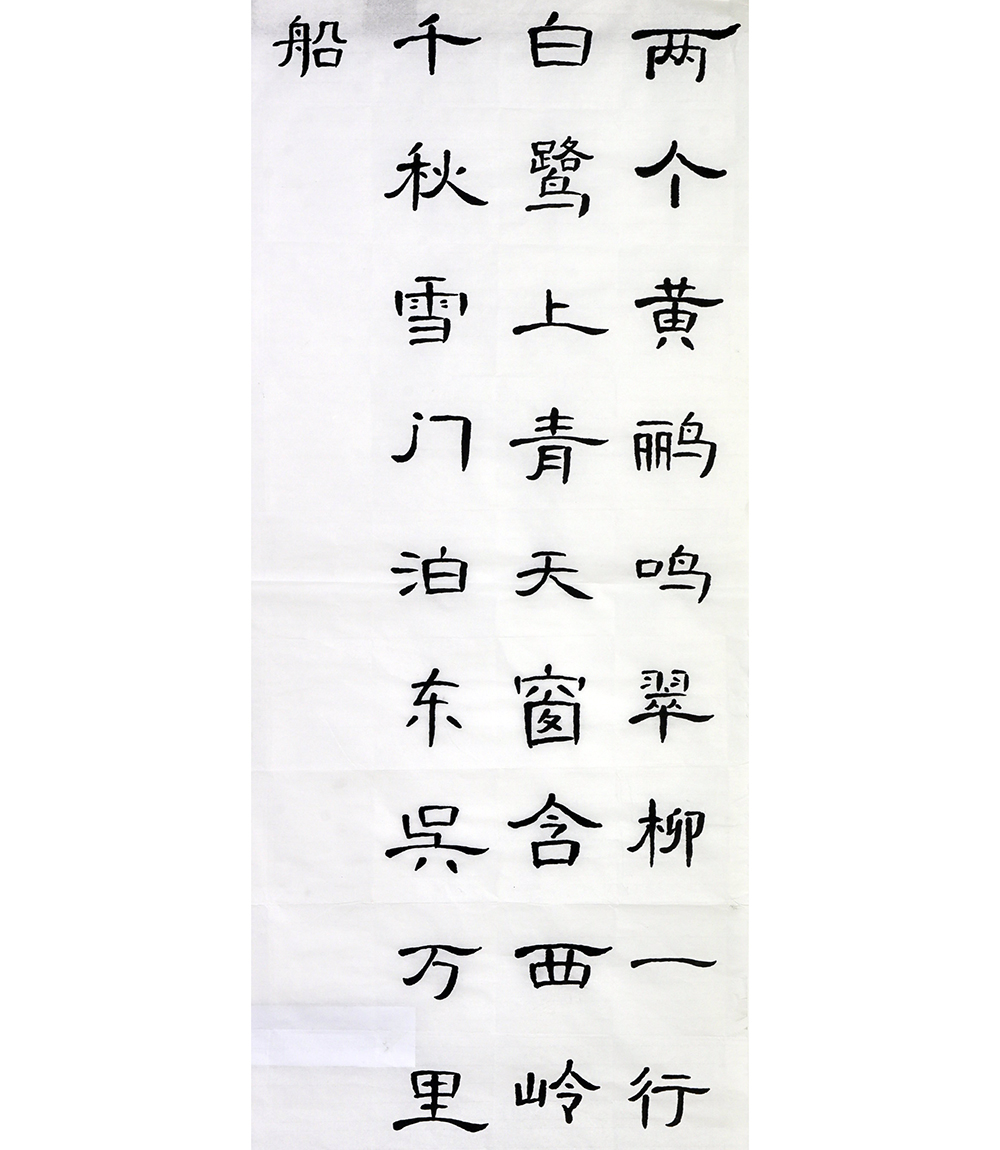 两个黄鹂鸣翠柳一行
白鹭上青天窗含西岭
千秋雪门泊东吳万里
船